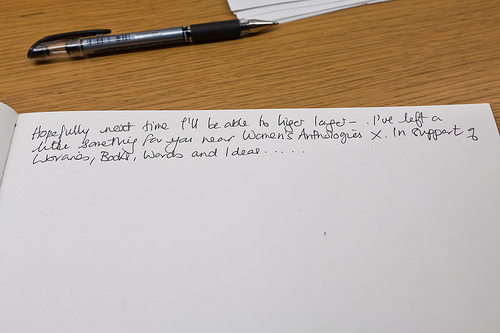 Hopefully next time I'll be able to liger larger – . I've left a
little something for you near Women's Anthologies X. In support of
Libraries, Books, Words and Ideas.....